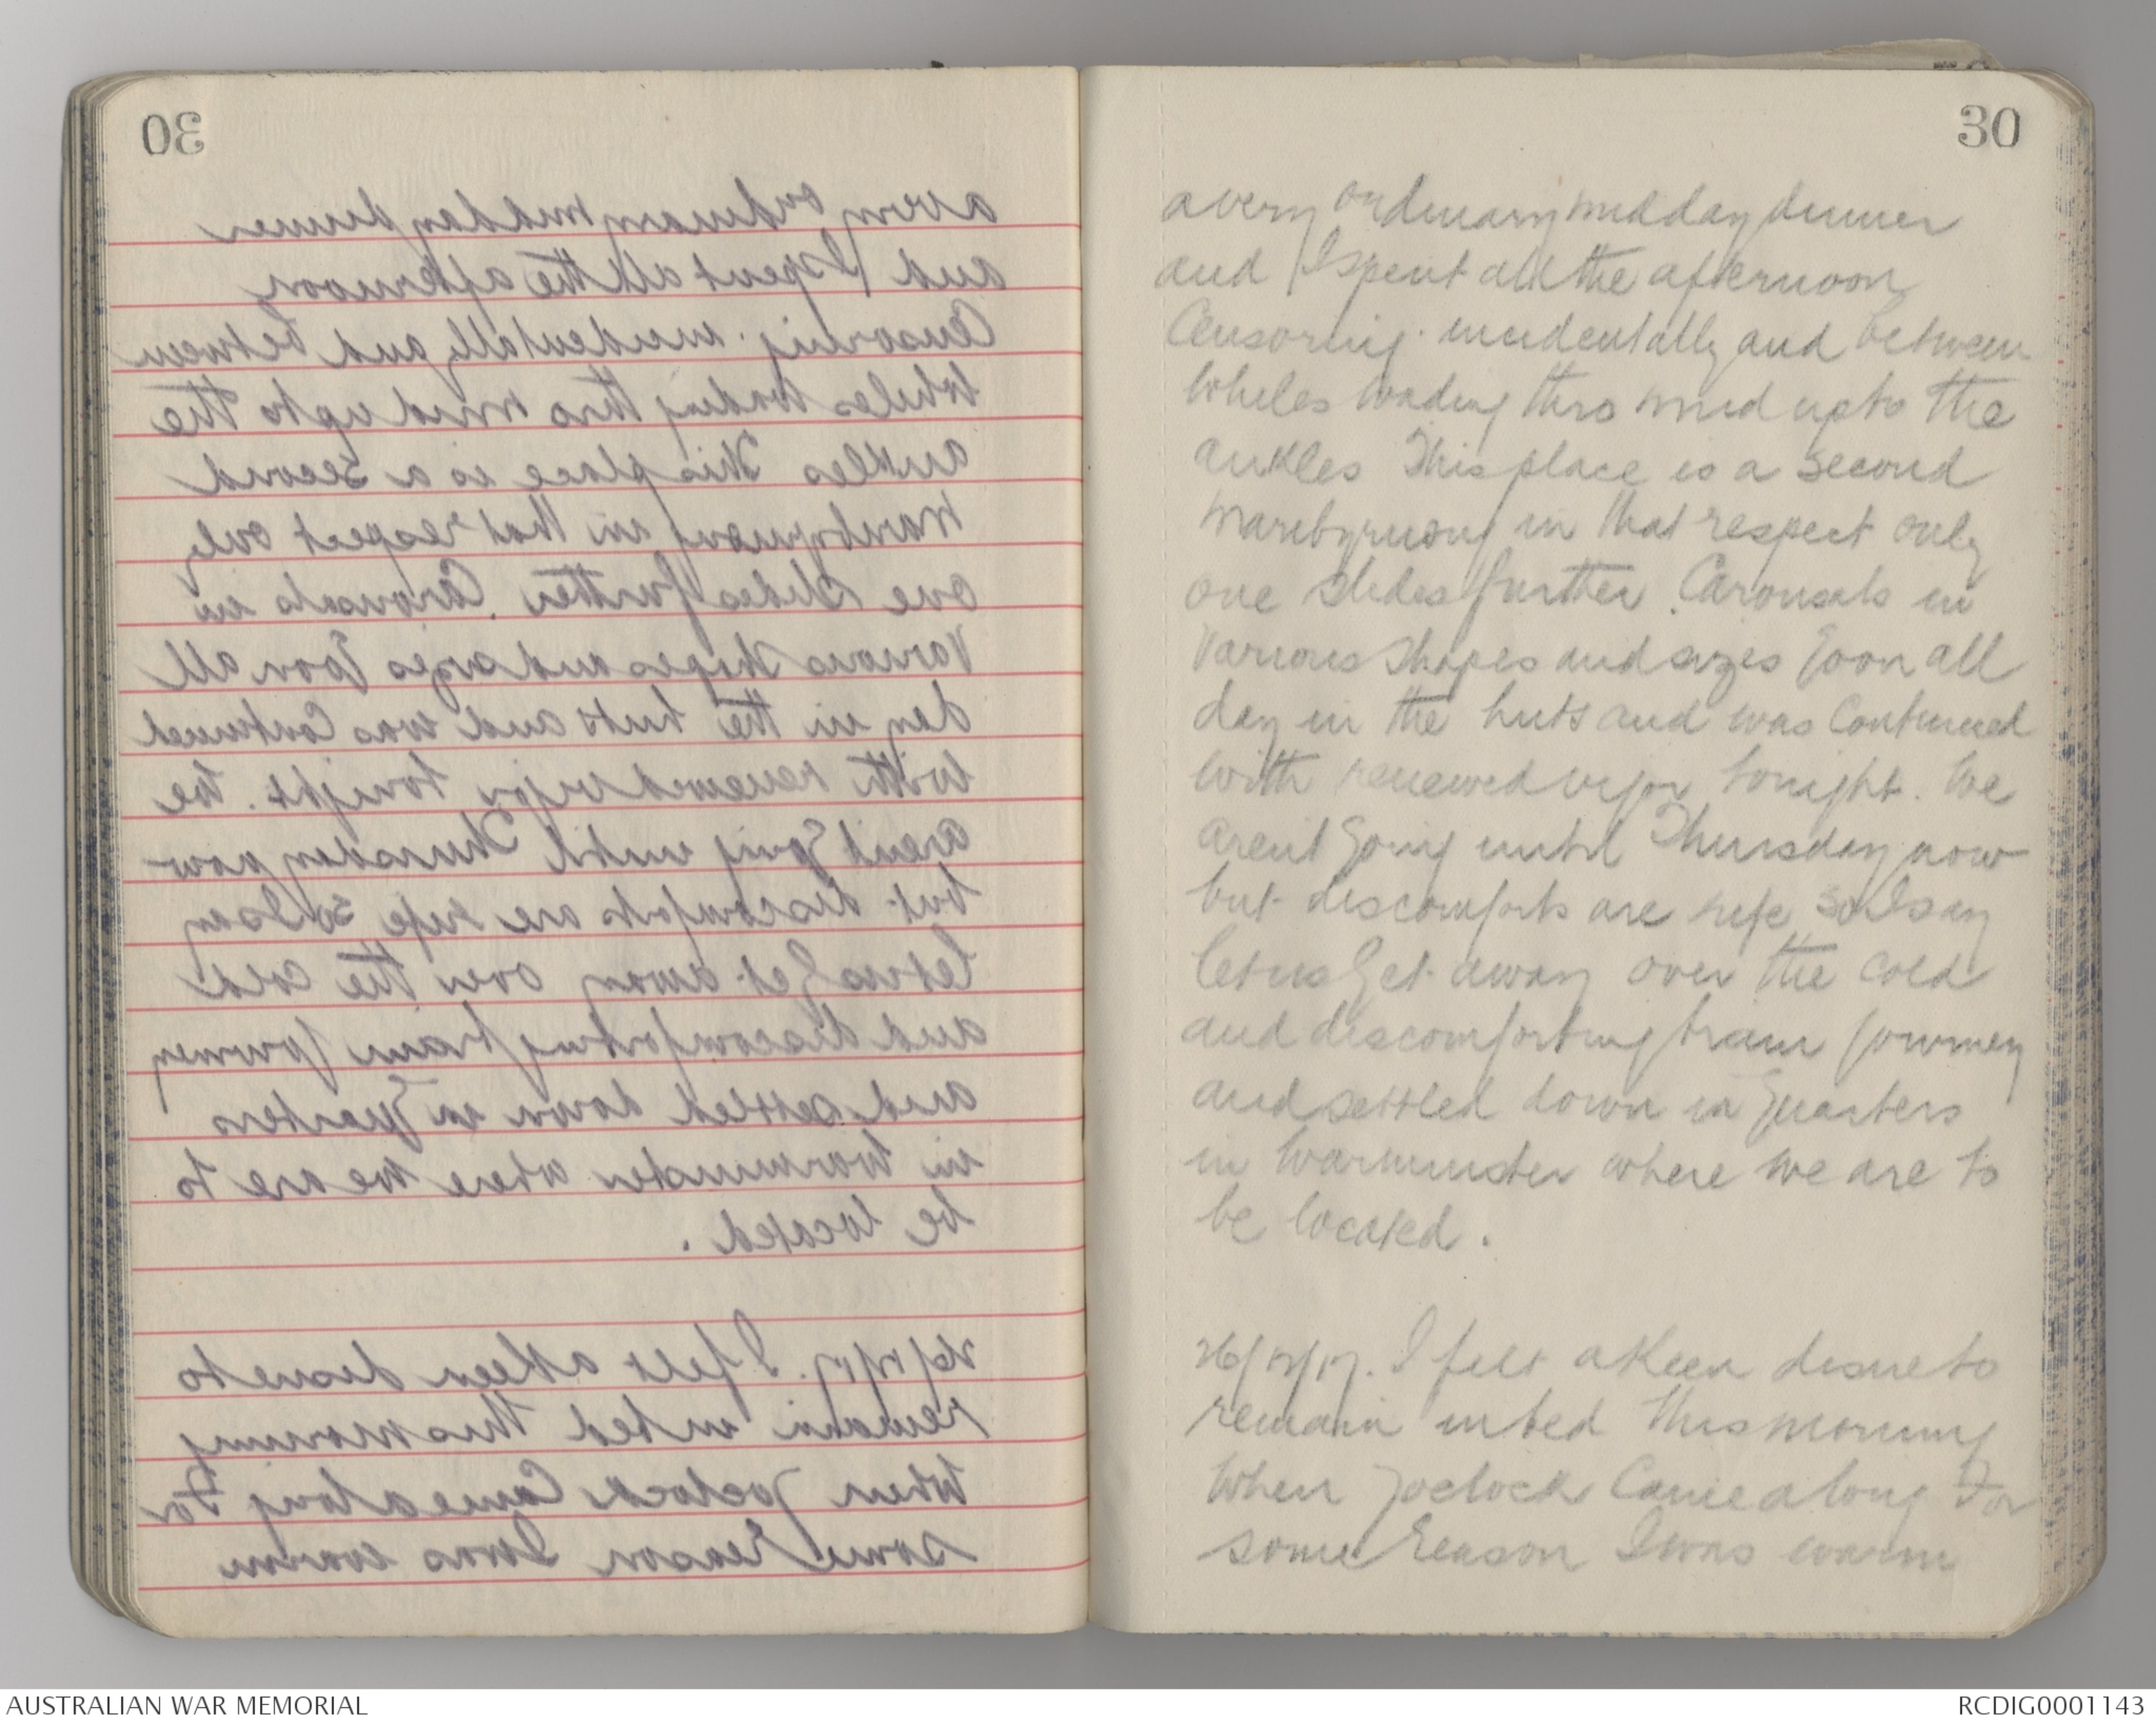 30
a very ordinary midday dinner
and I spent all the afternoon
Censoring incidentally and between
whiles wading thro mud up to the
ankles This place is a second
Maribyrnong in that respect only
one slides further. Carousals in
various shapes and sizes goon all
day in the huts and was continued
with renewed vigor tonight. We
arent going until Thursday now
but discomforts are rife so I say
let us get away over the cold
and discomforting train journey
and settled down in quarters
in Warminster where we are to
be located.
26/12/17. I felt a keen desire to
remain in bed this morning
when 7 oclock came along For
some reason I was warm
AUSTRALIAN WAR MEMORIAL
RCDIG0001143